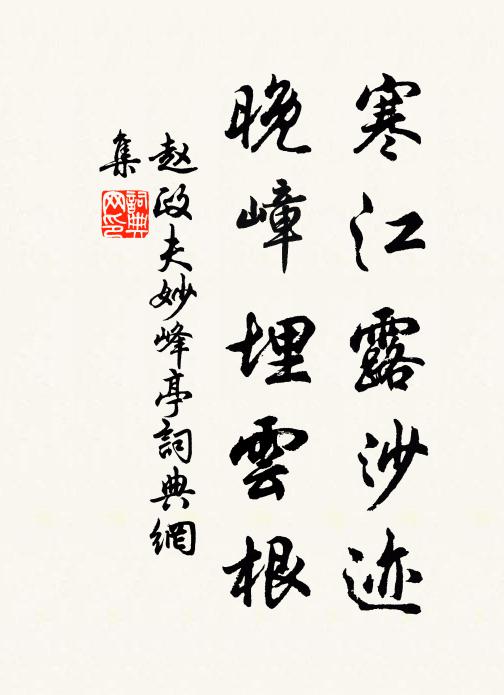 寒江露沙迹
晚嶂埋雲根
赵政夫妙峰亭詞典網
集
詞典
网印